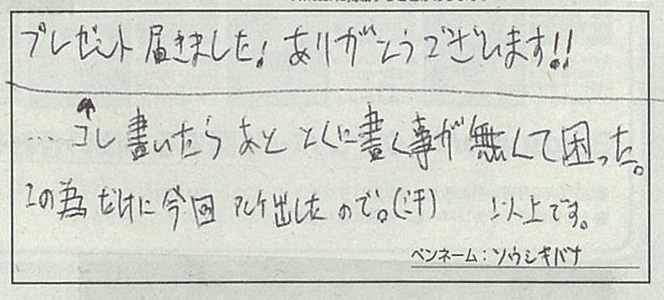 プレゼント届きました!ありがとうございます!!
…コレ書いたらあととくに書く事が無くて困った。
この為だけに今回アンケ出したので。(汗) 以上です。
ペンネーム:ソウシキバナ